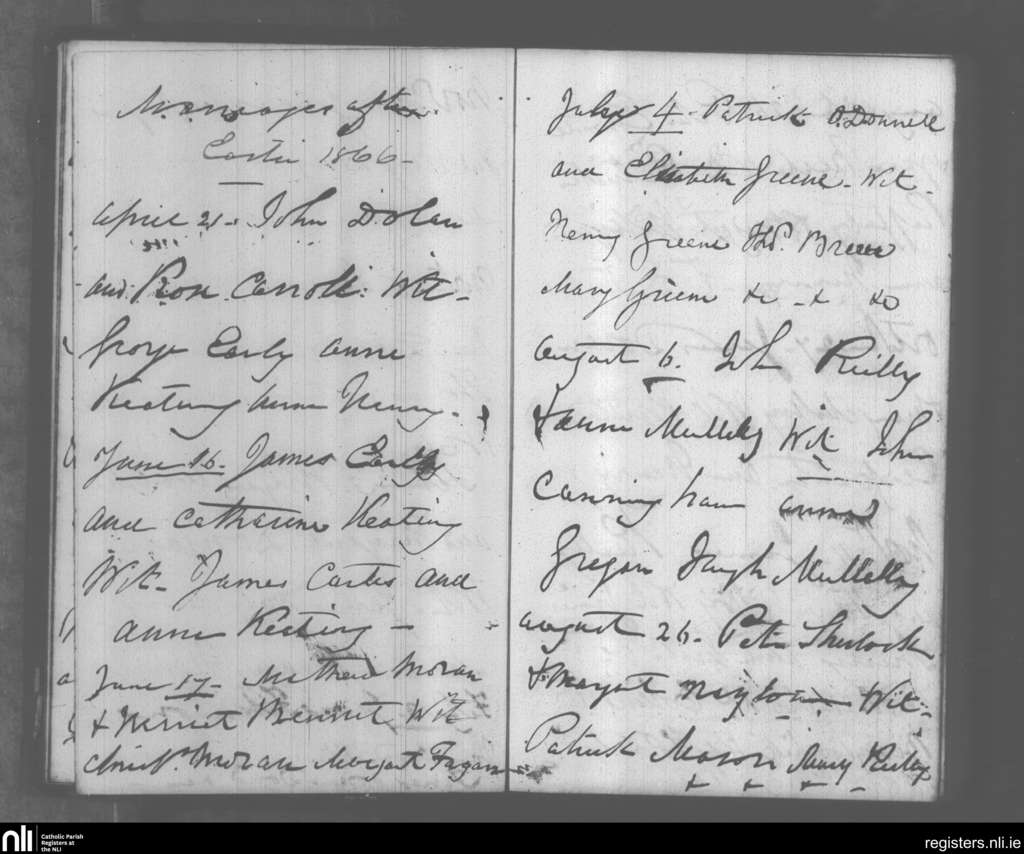 Marriages after
Easter 1866-
April 21. John Dolan
and Rose Carroll: Wit-
George Early Anne
Keating Anne Henry-
June 16. James Early
and Catharine Keating
Wit- James Carter and
Anne Keating -
June 17- Mathew Moran
& Harriet Bennet Wit
Christr. Moran Margart Fagan
July 4- Patrick O.Donnell
and Elisabeth Greene- Wit-
Henry Greene Thos. Breen
Mary Green &c - & &c
August 6. John Reilly
& Anne Mullally Wit John
Cunningham
Gregan Mullally
August 26- Peter Sherlock
& Margat Wit-
Patrick Mason Mary Reilly
nli
Catholic Parish
Registers at
the NLI
registers.nli.ie